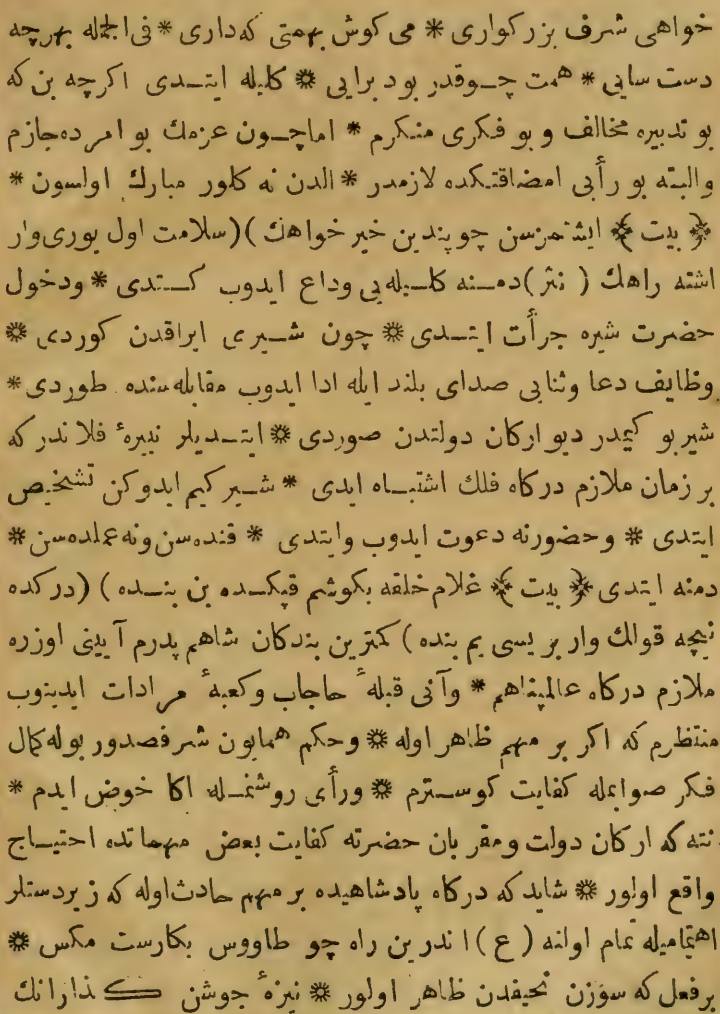 خواهی شرف بزرکواری * می کوش بهمتی که داری * فی الجمله بهرچه
دست سایی * همت چوقدر بود برایی ❊ کلیله ایتدی اکرچه بن که
بو تدبیره مخالف و بو فکری منکرم * اماچون عزمك بو امرده جازم
والبته بو رأیی امضاقتکده لازمدر * الدن نه کلور مبارك اولسون *
﴿ بیت ﴾ ایشتمزسن چو پندین خیر خواهك )(سلامت اول یوری وار
اشته راهك ( نثر )دمنه کلیله یی وداع ایدوب کتدی * ودخول
حضرت شیره جرأت ایتدی ❊ چون شیری ایراقدن کوردی ❊
وظایف دعا وثنایی صدای بلند ایله ادا ایدوب مقابله سنده طوردی *
شیر بو کیمدر دیو ارکان دولتدن صوردی ❊ ایتدیلر نبیرهٔ فلاندرکه
بر زمان ملازم درکاه فلك اشتباه ایدی * شیر کیم ایدوکن تشخیص
ایتدی ❊ وحضورنه دعوت ایدوب وایتدی * قنده سن ونه عملده سن ❊
دمنه ایتدی ﴿ بیت ﴾ غلام خلقه بکوشم قپکده بن بنده ) (درکده
نیچه قولك وار بریسی یم بنده ) کمترین بندکان شاهم پدرم آیینی اوزره
ملازم درکاه عالمپناهم * وآنی قبلهٔ حاجات وکعبهٔ مرادات ایدینوب
منتظرم که اکر بر مهم ظاهر اوله ❊ وحکم همایون شرفصدور بوله کمال
فکر صوابمله کفایت کوسترم ❊ ورأی روشنمله اکا خوض ایدم *
نته که ارکان دولت ومقربان حضرته کفایت بعض مهماتده احتیاج
واقع اولور ❊ شاید که درکاه پادشاهیده بر مهم حادث اوله که زیردستلر
اهتمامیله تمام اوانه ( ع )اندرین راه چو طاووس بکارست مکس ❊
برفعل که سوزن نحیفدن ظاهر اولور ❊ نیزهٔ جوشن کذارانك